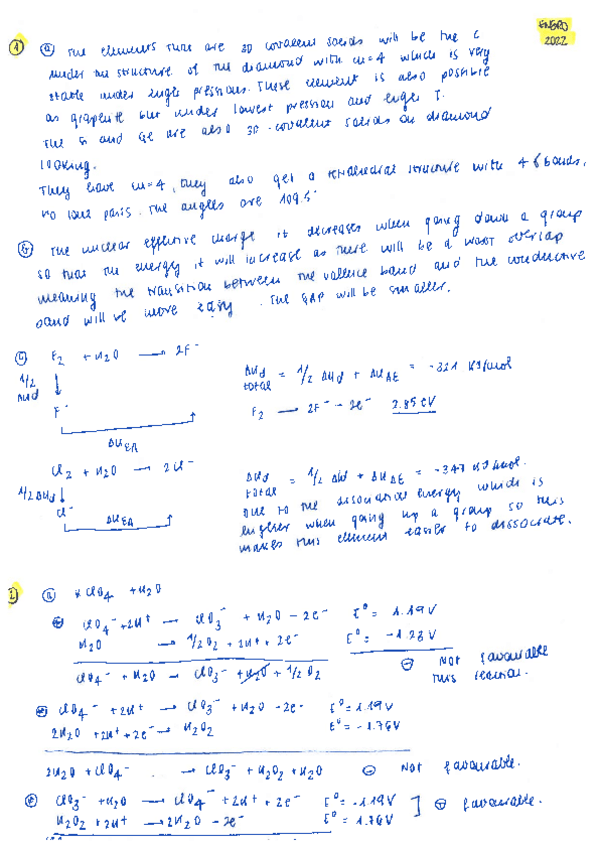 ENERO
2022
1 a The elements that are 3D covalent solids will be the C
under the structure of the diamond with n=4 which is very
stable under high pressions. These element is also possible
as graphite but under lowest pression and T.
The Si and Ge are also 3D-covalent solids on diamond
looking.
They have n=4, they also get a tetrahedral structure with 4 bonds,
no lone pairs. The angles are 109.5°
b The nuclear effective charge it decreases when going down a group
so that the energy it will increase as there will be a worst overlap
meaning the transition between the valence band and the conductive
band will be more easy. The GAP will be smaller.
c F2 + H2O → 2F-
1/2 ΔHd
F-
ΔHEA
ΔHd total = 1/2 ΔHd + ΔHAE = -321 KJ/mol
F2 → 2F- - 2e- 2.85 eV
Cl2 + H2O → 2Cl-
1/2 ΔHd
Cl-
ΔHEA
ΔHd total = 1/2 ΔHd + ΔHAE = -347 KJ/mol.
Due to the dissociation energy which is
higher when going up a group so this
makes this element easier to dissociate.
2 a ClO4 + H2O
ClO4- + 2H+ → ClO3- + H2O - 2e- E° = 1.19 V
H2O → 1/2 O2 + 2H+ + 2e- E° = -1.23 V
ClO4- + H2O → ClO3- + H2O + 1/2 O2
⊖ Not favourable
this reaction.
ClO4- + 2H+ → ClO3- + H2O - 2e- E° = 1.19 V
2H2O + 2H+ + 2e- → H2O2 E° = -1.76 V
2H2O + ClO4- → ClO3- + H2O2 + H2O ⊖ Not favourable.
ClO3- + H2O → ClO4- + 2H+ + 2e- E° = -1.19 V
H2O2 + 2H+ → 2H2O - 2e- E° = 1.76 V ] ⊕ favourable.